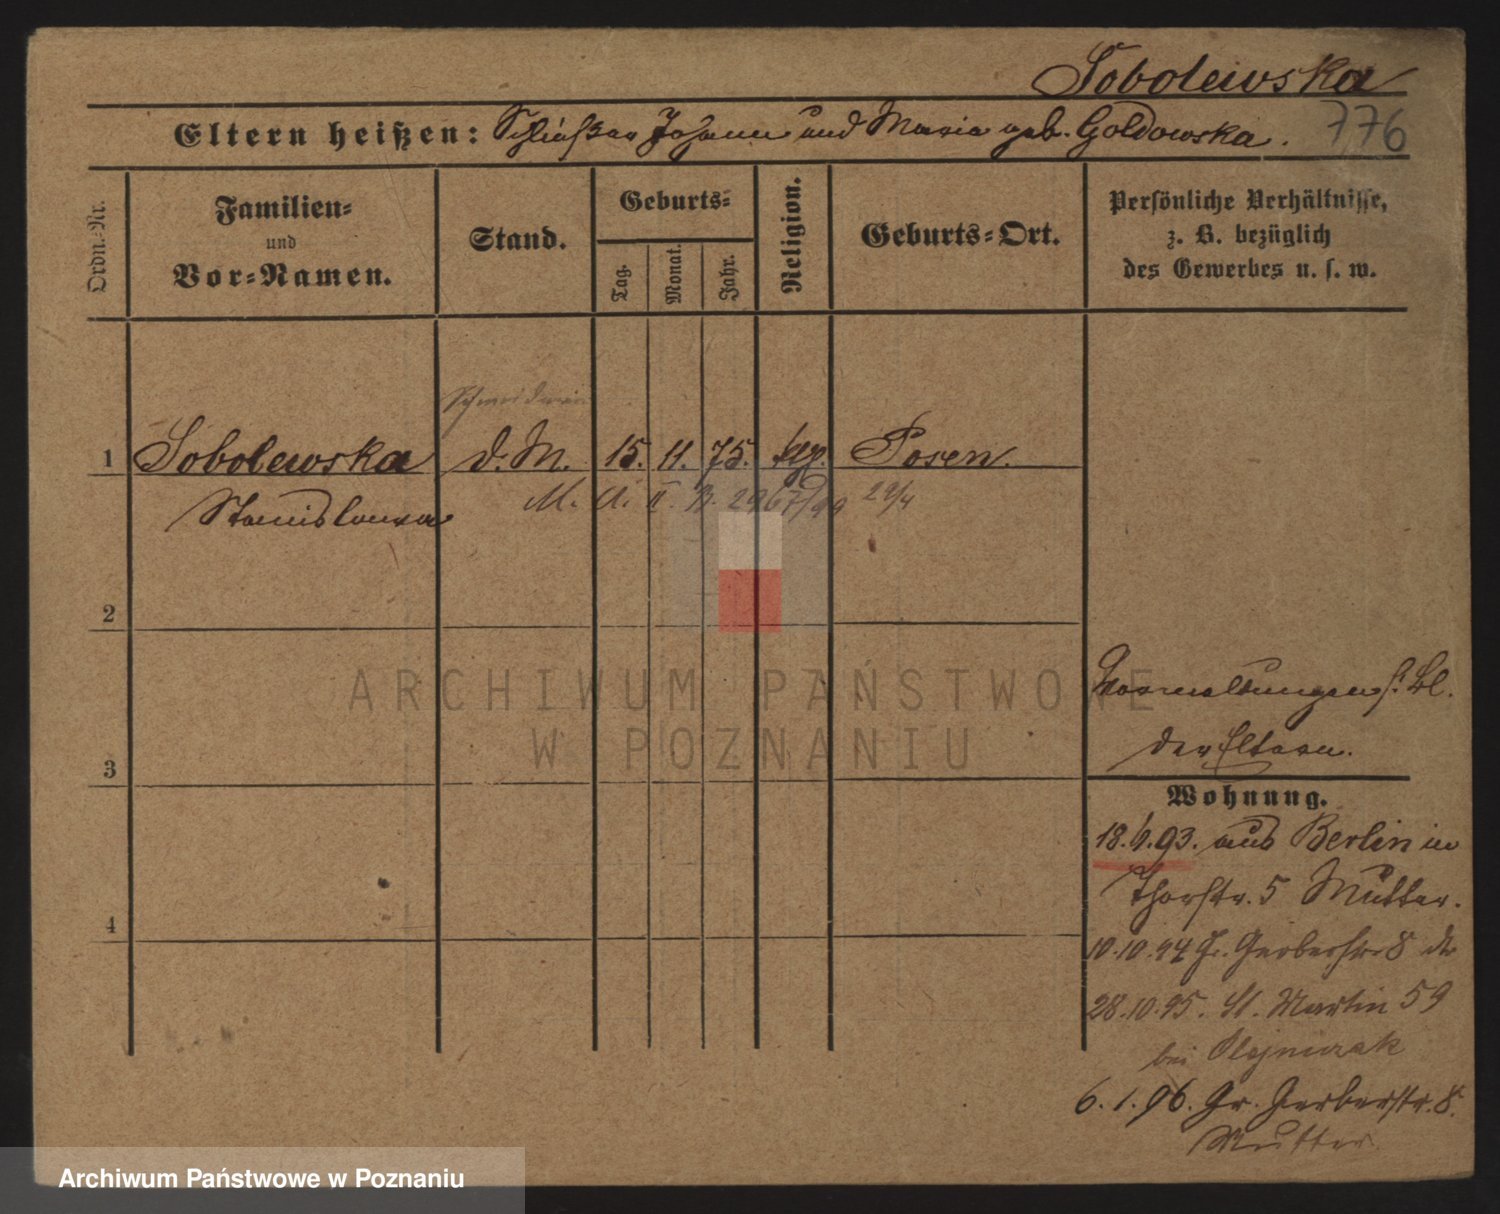 Sobolewska
776
Eltern heißen: Schließer Johann und Maria geb. Goldowska.
Ordn.-Nr.
Familien- und Vor-Namen.
Stand.
Geburts-
Tag.
Monat.
Jahr.
Religion.
Geburts-Ort.
Persönliche Verhältnisse,
z. B. bezüglich
des Gewerbes u. s. w.
Schneiderin
1 Sobolewska d. M. 15. 11. 75. Posen.
Stanislawa M. A. II. B. 2967/99 29/4
2
3
4
Anmeldungen s. Bl.
der Eltern.
Wohnung.
18.6.93. aus Berlin in
Thorstr. 5 Mutter.
10.10.94 Gr. Gerberstr 8 do
28.10.95. St. Martin 59
bei Olejniczak
6.1.96. Gr. Gerberstr. 8.
Mutter
ARCHIWUM PAŃSTWOWE
W POZNANIU
Archiwum Państwowe w Poznaniu